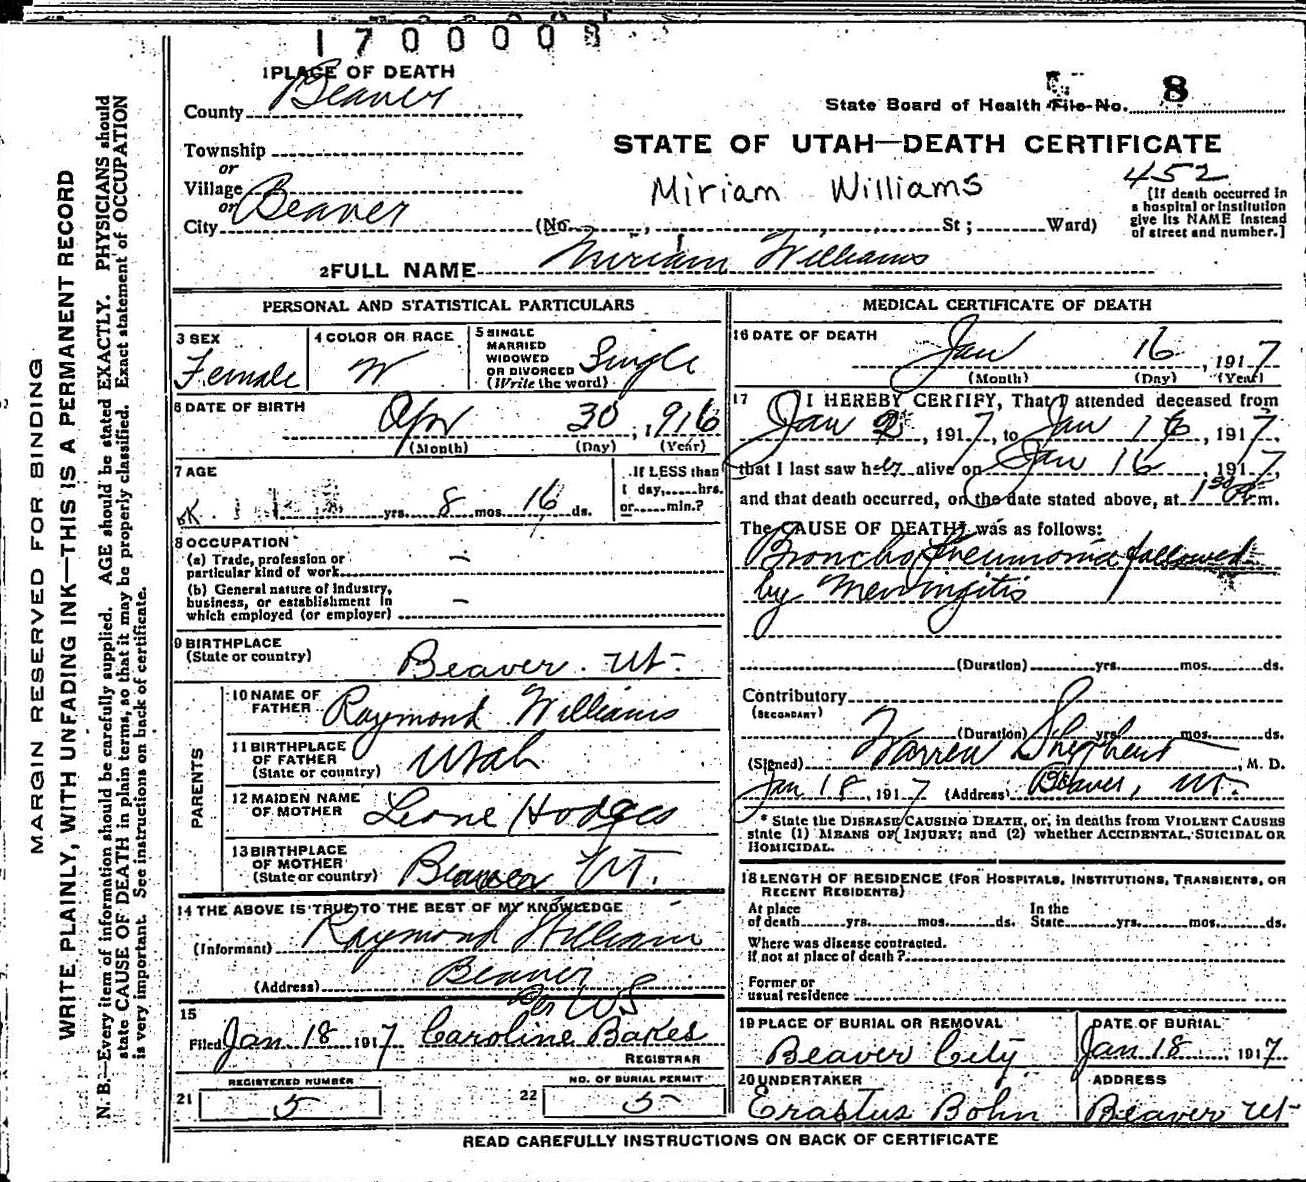 1700008
1 PLACE OF DEATH
County Beaver
State Board of Health File No. 8
STATE OF UTAH—DEATH CERTIFICATE
Township
or
Village
or
City Beaver
Miriam Williams
452
(No. St; Ward)
[If death occurred in
a hospital or institution
give its NAME instead
of street and number.]
2 FULL NAME Miriam Williams
PERSONAL AND STATISTICAL PARTICULARS
3 SEX
Female
4 COLOR OR RACE
W
5 SINGLE
MARRIED
WIDOWED
OR DIVORCED
(Write the word)
Single
6 DATE OF BIRTH
Apr 30, 1916
(Month) (Day) (Year)
7 AGE
yrs. 8 mos. 16 ds.
If LESS than
1 day, hrs.
or min.?
8 OCCUPATION
(a) Trade, profession or
particular kind of work —
(b) General nature of industry,
business, or establishment in
which employed (or employer) —
9 BIRTHPLACE
(State or country) Beaver. Ut-
PARENTS
10 NAME OF
FATHER Raymond Williams
11 BIRTHPLACE
OF FATHER
(State or country) Utah
12 MAIDEN NAME
OF MOTHER Leone Hodges
13 BIRTHPLACE
OF MOTHER
(State or country) Beaver UT.
14 THE ABOVE IS TRUE TO THE BEST OF MY KNOWLEDGE
(Informant) Raymond William
(Address) Beaver
Per WS
15
Filed Jan 18 1917 Caroline Bakes
REGISTRAR
REGISTERED NUMBER
21 5
NO. OF BURIAL PERMIT
22 5
MEDICAL CERTIFICATE OF DEATH
16 DATE OF DEATH
Jan 16, 1917
(Month) (Day) (Year)
17 I HEREBY CERTIFY, That I attended deceased from
Jan 2, 1917, to Jan 16, 1917,
that I last saw her alive on Jan 16, 1917,
and that death occurred, on the date stated above, at 1 30 m.
The CAUSE OF DEATH* was as follows:
Broncho Pneumonia followed
by Meningitis
(Duration) yrs. mos. ds.
Contributory
(SECONDARY)
(Duration) yrs. mos. ds.
(Signed) Warren Shepherd, M. D.
Jan 18, 1917 (Address) Beaver, Ut.
* State the DISEASE CAUSING DEATH, or, in deaths from VIOLENT CAUSES
state (1) MEANS OF INJURY; and (2) whether ACCIDENTAL, SUICIDAL OR
HOMICIDAL.
18 LENGTH OF RESIDENCE (FOR HOSPITALS, INSTITUTIONS, TRANSIENTS, OR
RECENT RESIDENTS)
At place
of death yrs. mos. ds.
In the
State yrs. mos. ds.
Where was disease contracted.
if not at place of death?
Former or
usual residence
19 PLACE OF BURIAL OR REMOVAL
Beaver City
DATE OF BURIAL
Jan 18 1917
20 UNDERTAKER
Erastus Bohn
ADDRESS
Beaver Ut-
READ CAREFULLY INSTRUCTIONS ON BACK OF CERTIFICATE
MARGIN RESERVED FOR BINDING
WRITE PLAINLY, WITH UNFADING INK—THIS IS A PERMANENT RECORD
N. B.—Every item of information should be carefully supplied. AGE should be stated EXACTLY. PHYSICIANS should
state CAUSE OF DEATH in plain terms, so that it may be properly classified. Exact statement of OCCUPATION
is very important. See instructions on back of certificate.